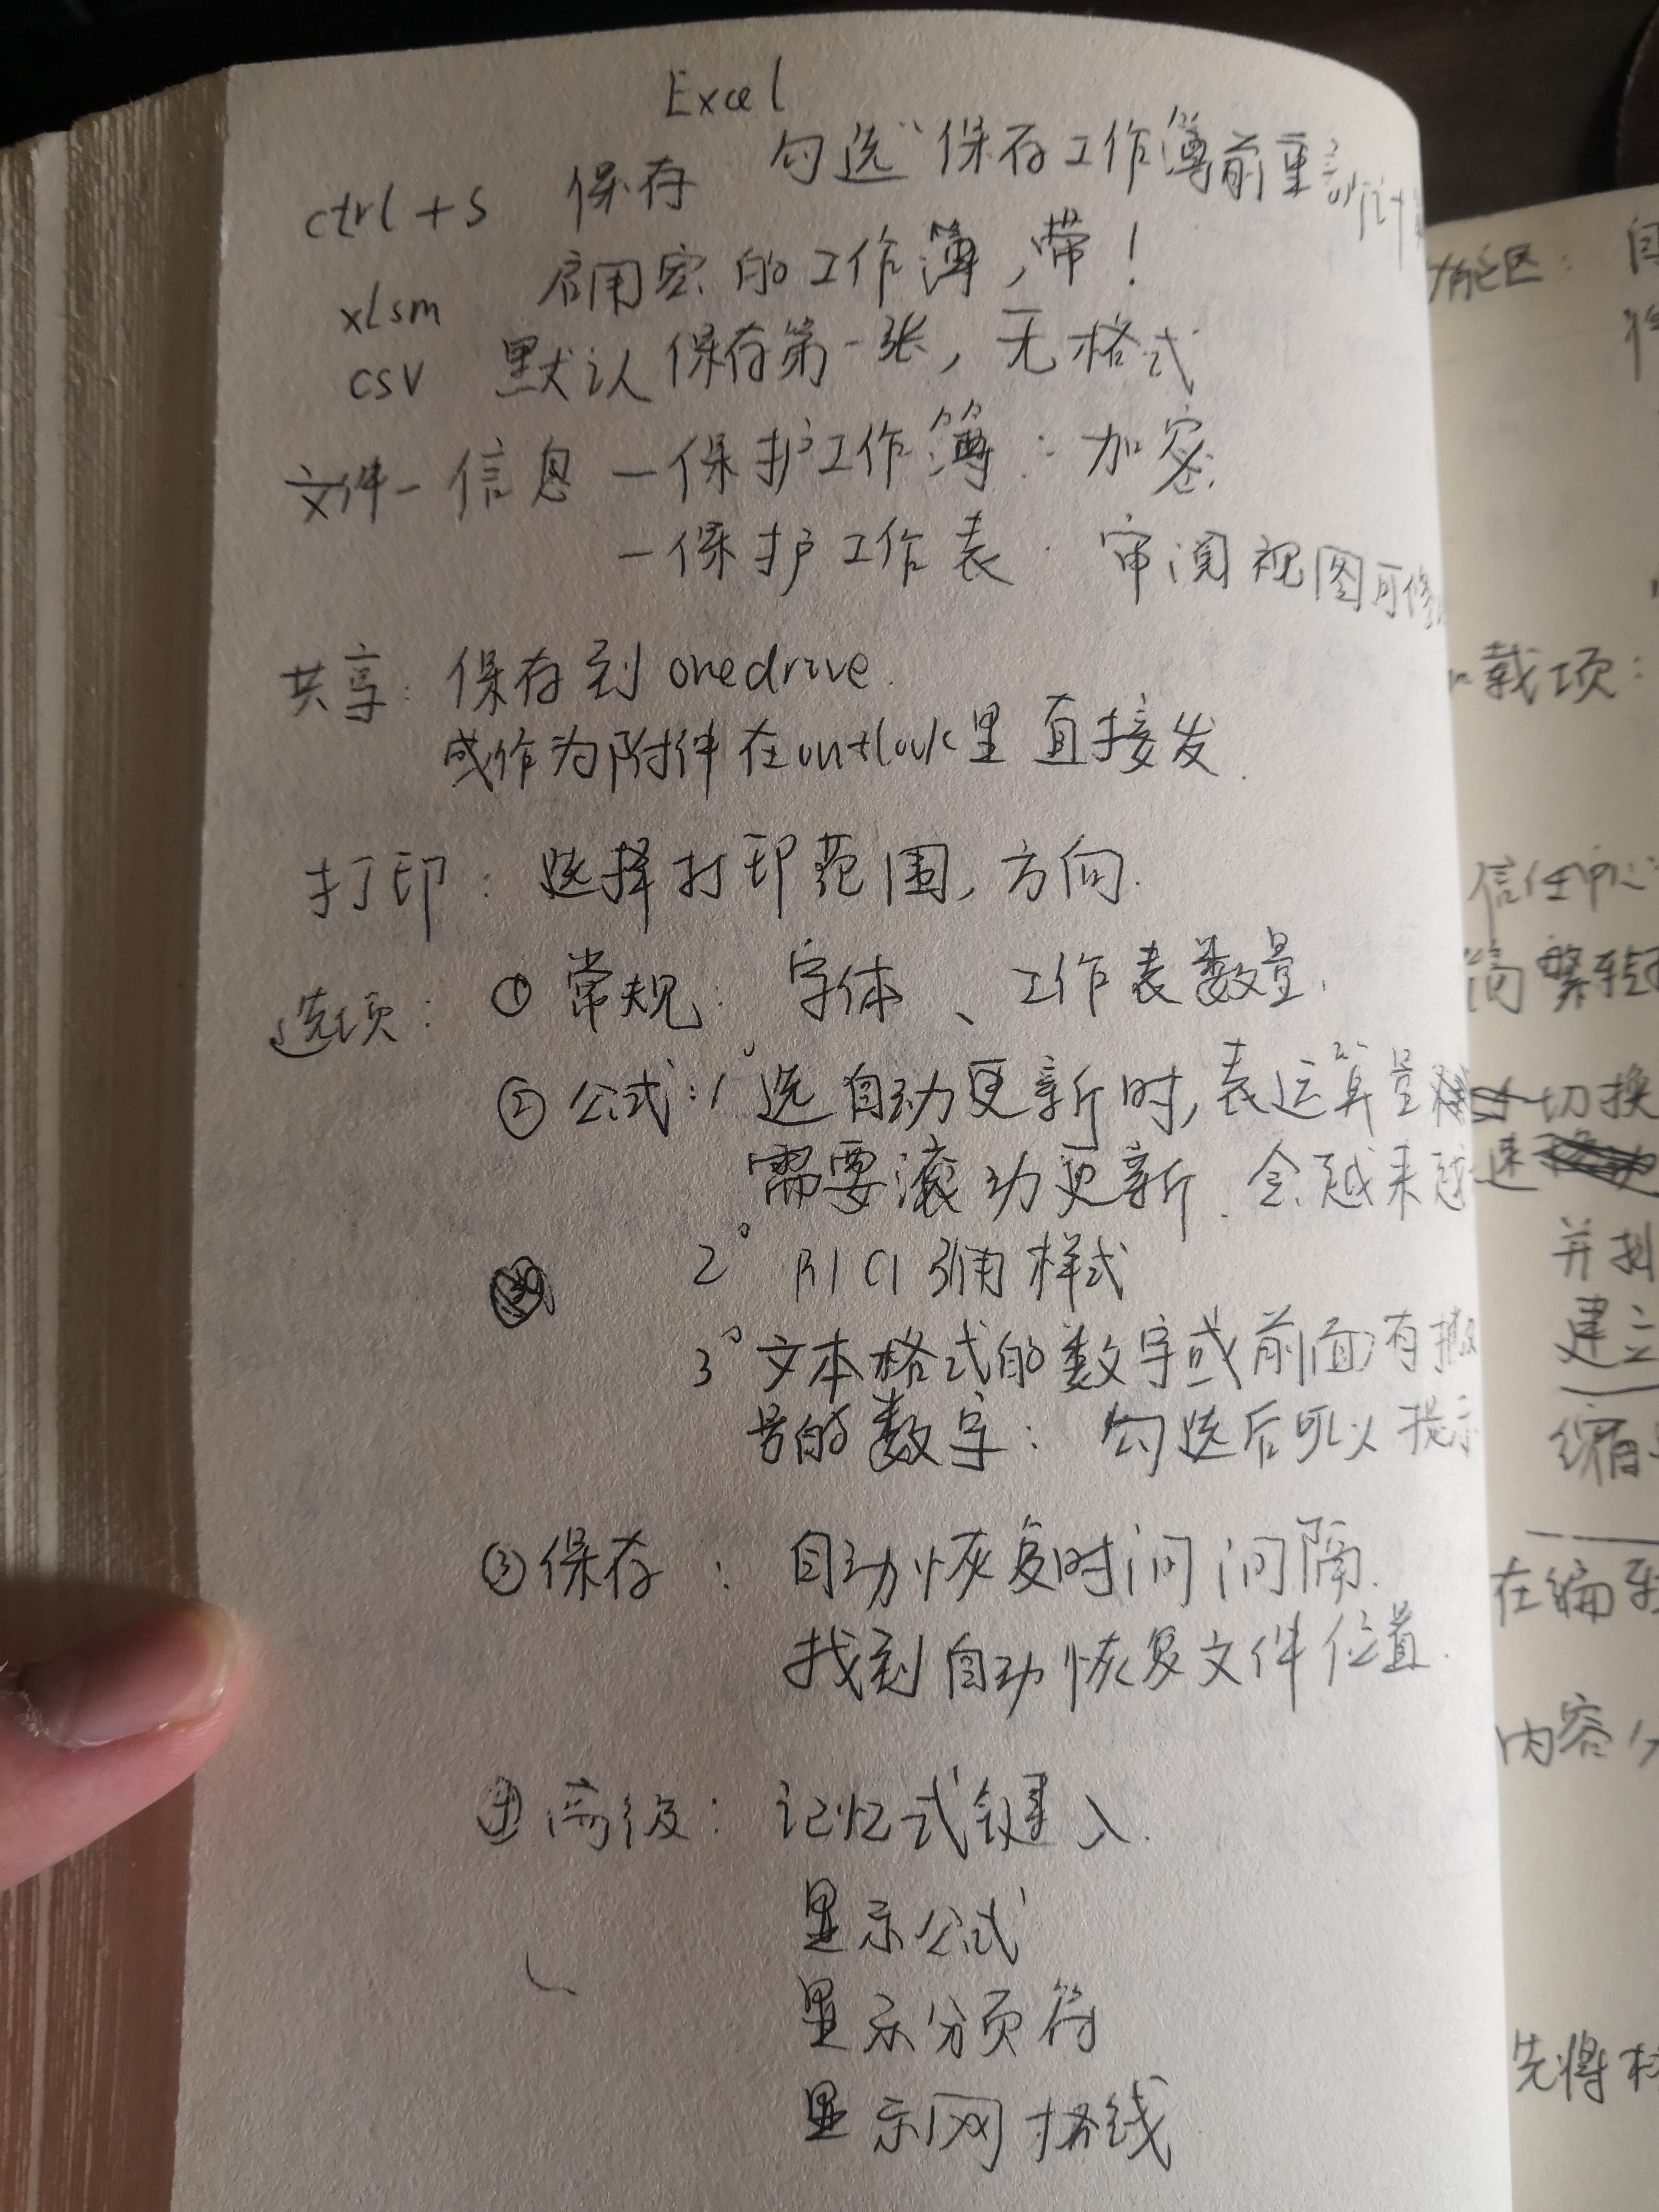 Excel
ctrl + s 保存 勾选“保存工作簿前重新计
xlsm 启用宏的工作簿,带!
csv 默认保存第一张,无格式
文件-信息-保护工作簿:加密
-保护工作表 审阅视图可修
共享:保存到onedrive.
或作为附件在outlook里直接发.
打印:选择打印范围,方向.
选项:①常规:字体、工作表数量.
②公式:1°选自动更新时,表运算量
需要滚动更新.会越来越
2° R1C1引用样式
3°文本格式的数字或前面有撇
号的数字:勾选后可以提示
③保存:自动恢复时间间隔.
找到自动恢复文件位置.
④高级:记忆式键入.
显示公式
显示分页符
显示网格线
载项:
信任中心
简繁转
切换
速
并
建立
缩
在编
内容
先将